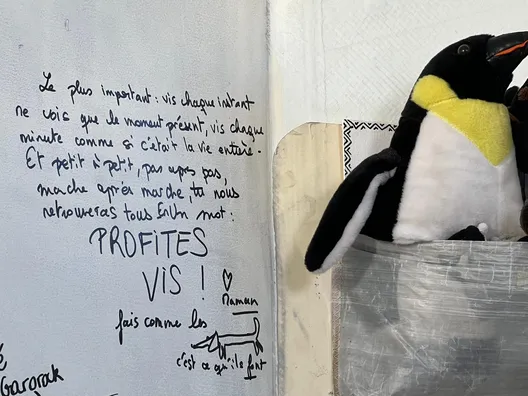 Le plus important : vis chaque instant
ne vois que le moment présent, vis chaque
minute comme si c'était la vie entière.
Et petit à petit, pas après pas,
marche après marche, tu nous
retrouveras tous En Un mot :
PROFITES
VIS ! ♡
Maman
fais comme les
c'est ce qu'ils font
Gararak